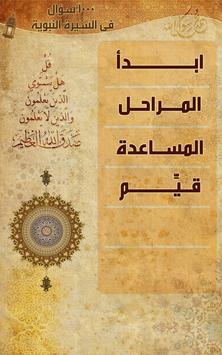 ١٠٠٠ سؤال
في السيرة النبوية
قُلْ
هَلْ يَسْتَوِي
الَّذِينَ يَعْلَمُونَ
وَالَّذِينَ لَا يَعْلَمُونَ
صدق الله العظيم
ابدأ
المراحل
المساعدة
قيّم